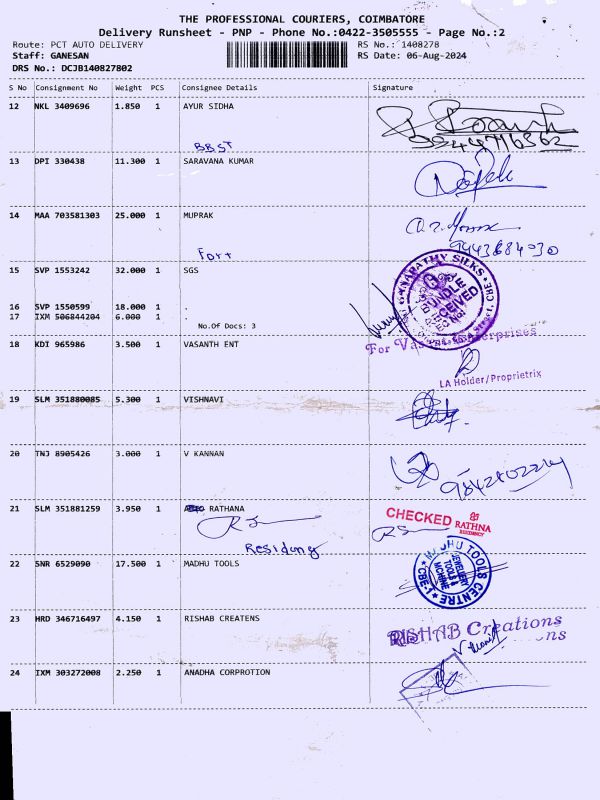 THE PROFESSIONAL COURIERS, COIMBATORE
Delivery Runsheet - PNP - Phone No.:0422-3505555 - Page No.:2
Route: PCT AUTO DELIVERY RS No.: 1408278
Staff: GANESAN RS Date: 06-Aug-2024
DRS No.: DCJB140827802
S No Consignment No Weight PCS Consignee Details Signature
12 NKL 3409696 1.850 1 AYUR SIDHA
13 DPI 330438 11.300 1 SARAVANA KUMAR
14 MAA 703581303 25.000 1 MUPRAK
Fort
15 SVP 1553242 32.000 1 SGS
16 SVP 1550599 18.000 1 .
17 IXM 506844204 6.000 1 .
No.Of Docs: 3
18 KDI 965986 3.500 1 VASANTH ENT
LA Holder/Proprietrix
19 SLM 351880085 5.300 1 VISHNAVI
20 TNJ 8905426 3.000 1 V KANNAN
21 SLM 351881259 3.950 1 RATHANA
CHECKED RATHNA
RESIDENCY
22 SNR 6529090 17.500 1 MADHU TOOLS
MADHU TOOLS CENTRE
CBE-1
JEWELLERY
TOOLS &
23 HRD 346716497 4.150 1 RISHAB CREATENS
RISHAB Creations
24 IXM 303272008 2.250 1 ANADHA CORPROTION